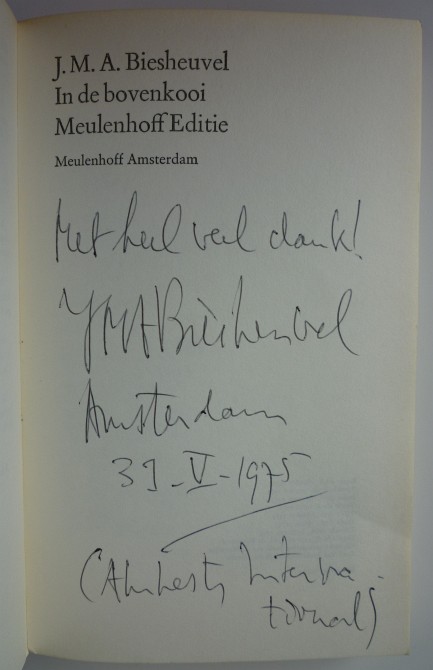 J. M. A. Biesheuvel
In de bovenkooi
Meulenhoff Editie
Meulenhoff Amsterdam
Met heel veel dank!
JMABiesheuvel
Amsterdam
31-V-1975
(Amnesty Interna-
tional)